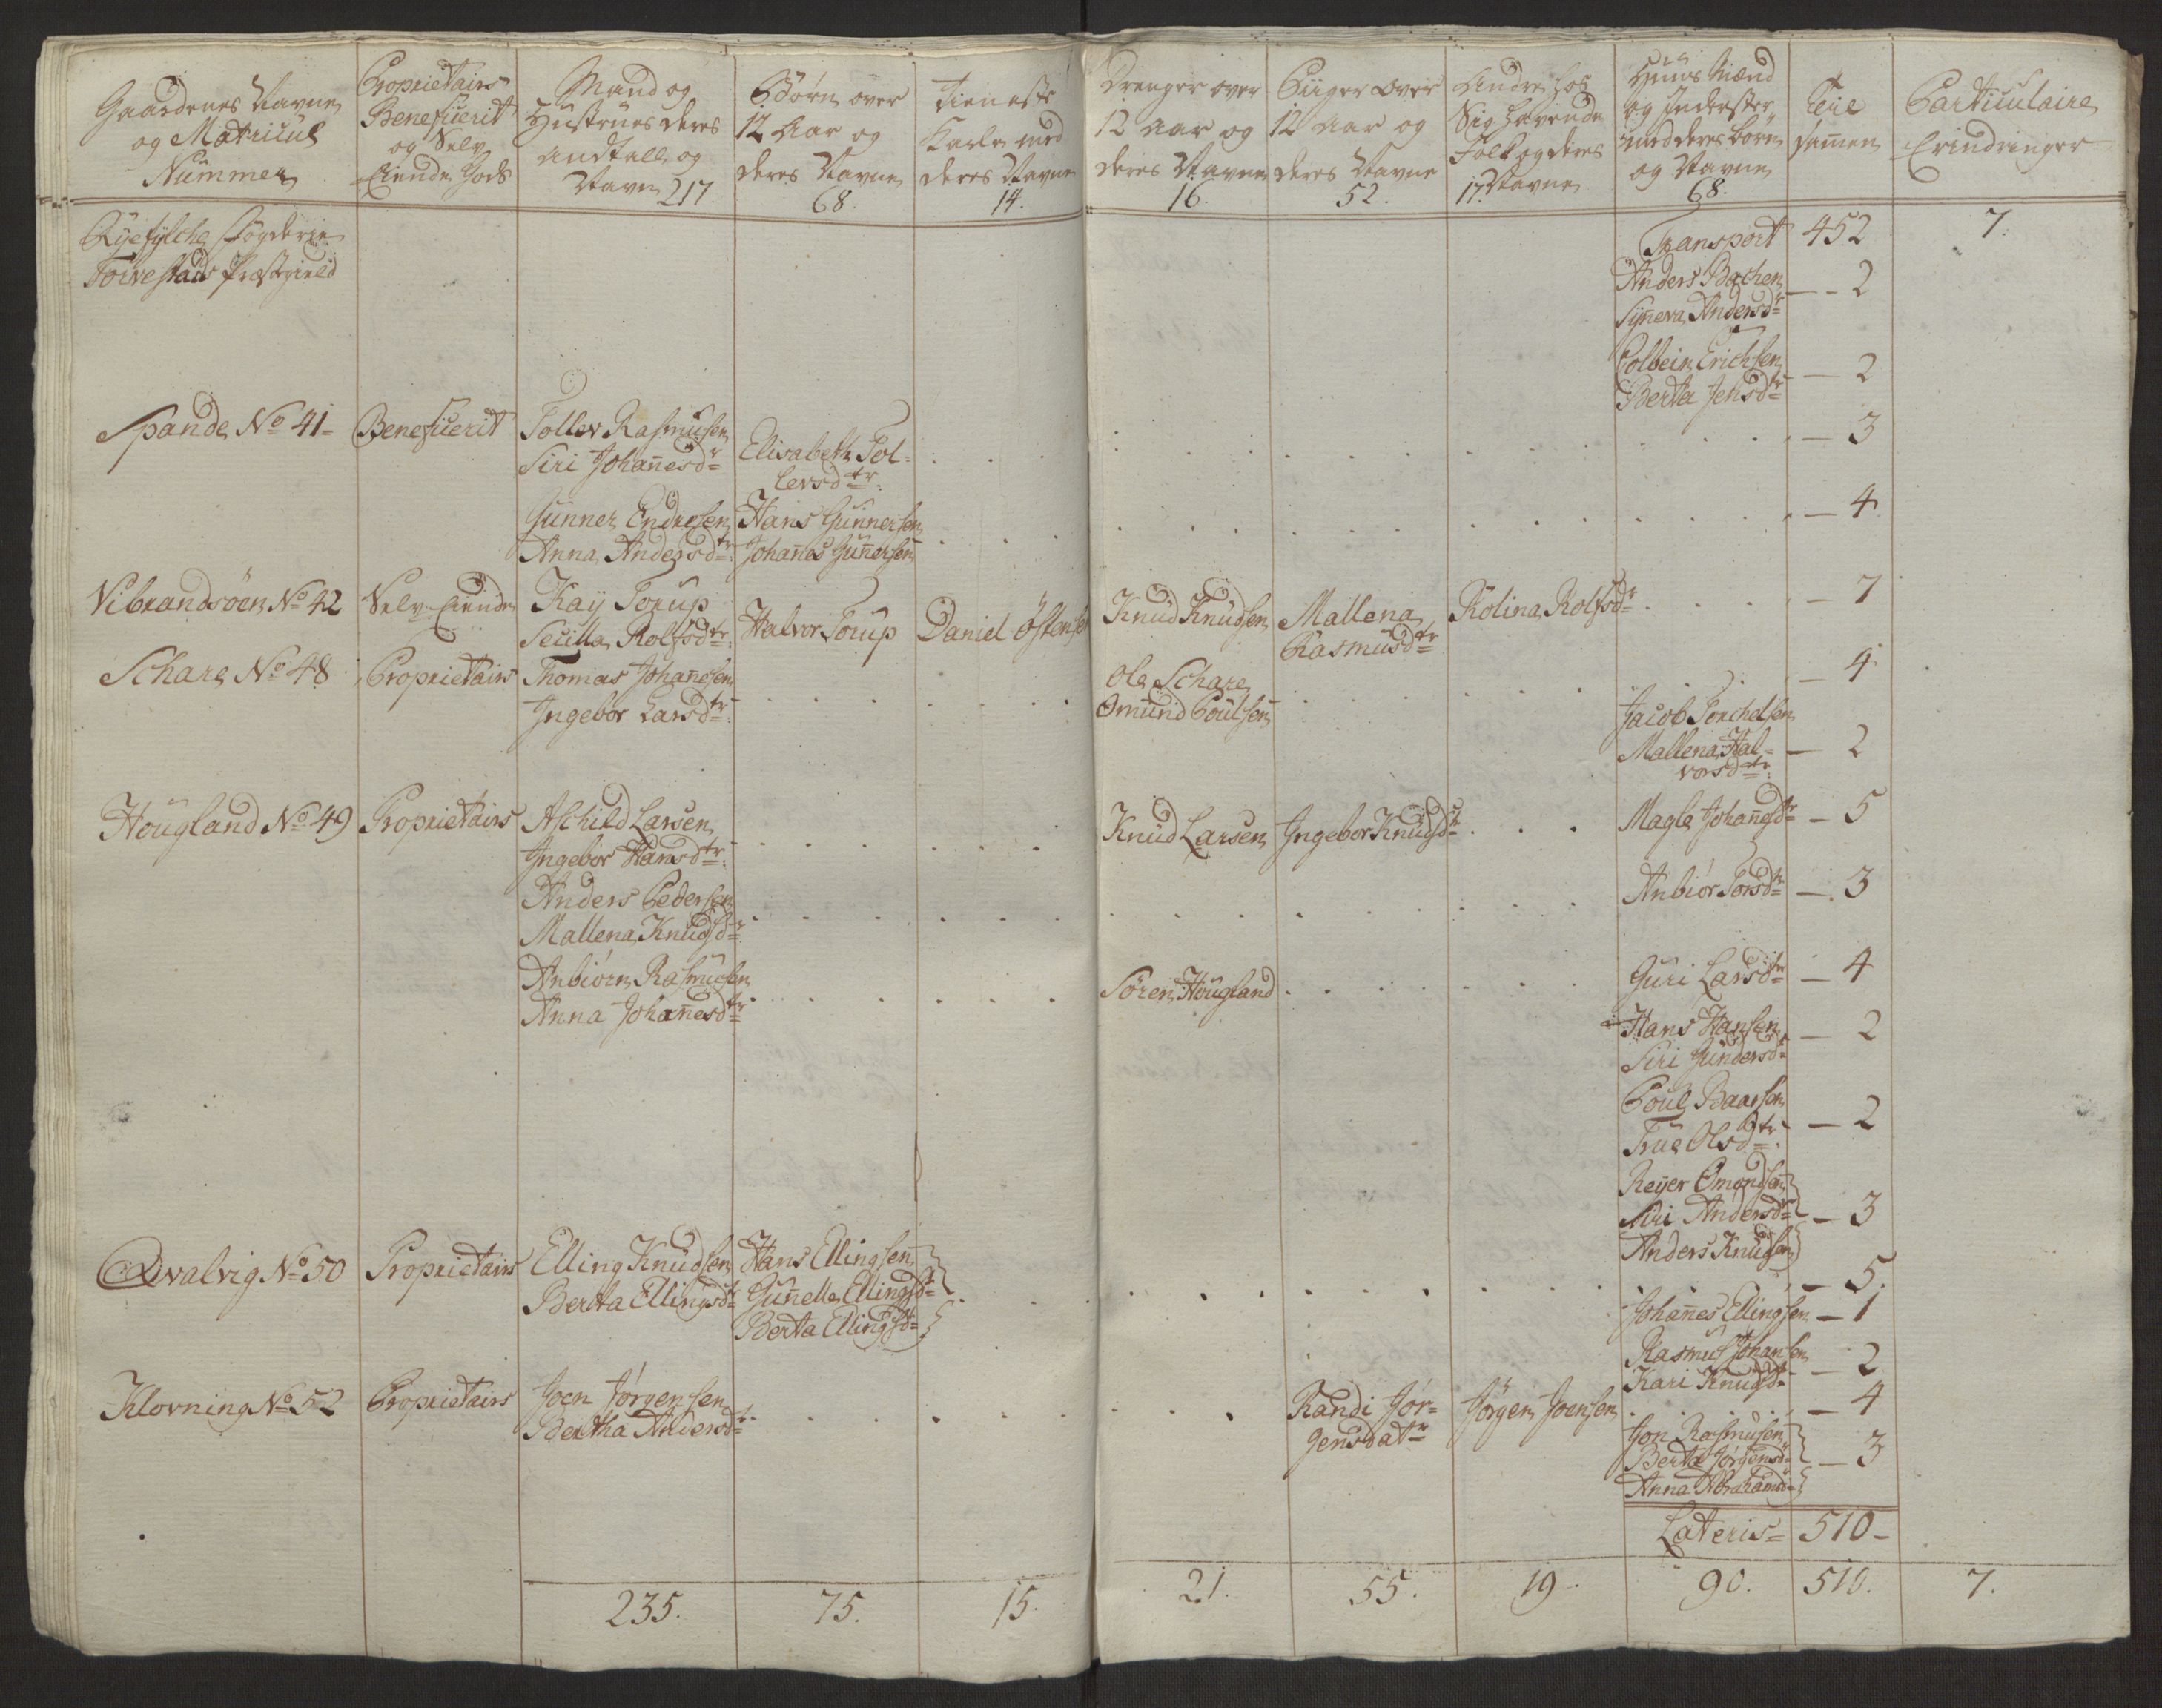 Gaardenes Navne
og Matricul
Nummer
Proprietairs
Benefiicerit
og Selv
Eiende Gods
Mand og
Hustrues deres
Andtall og
Navn 217.
Børn over
12 Aar og
deres Navne
68.
Tieneste
Karle med
deres Navne
14.
Drenger over
12 Aar og
deres Navne
16.
Piiger over
12 Aar og
deres Navne
52.
Andre hos
Sig havende
Folk og deres
17. Navne
Huus Mænd
og Inderster
med deres børn
og Navne
68.
Teie
sam̄en
Particulaire
Erindringer
Ryefylche Fogderie
Torvestads Præstegield
Transport 452 7.
Anders Bachen
Syn̄eva Andersdr — 2
Colbein Erichsen
Berta Jensdtr — 2
Spande No 41 Beneficerit Tollev Rasmusen
Siri Johan̄esdr Elisabeth Tol-
levsdtr — 3
Gunner Endresen Hans Gunnersen
Anna Andersdtr Johan̄es Gun̄ersen — 4
Vibrandsöen No 42 Selv Eiende Kay Torup
Secilla Rolfsdtr Halvor Torup Daniel Östense Knud Knudsen Mallena
Rasmusdtr Rolina Rolfsdr — 7
Schare No 48 Proprietairs Thomas Johan̄esen
Ingebor Larsdtr Ole Schare
Omund Poulsen — 4
Jacob Torchelsen
Mallena Hal-
vorsdtr — 2
Hougland No 49 Proprietairs Aschild Larsen
Ingebor Hansdtr Knud Larsen Ingebor Knudsdtr Magle Johan̄esdtr — 5
Anders Pedersen
Mallena Knudsdr Anbiör Torsdtr — 3
Anbiörn Rasmusen
Anna Johan̄esdtr Sören Hougland Guri Larsdtr — 4
Hans Hansen
Siri Gundersdtr — 2
Poul Baarsen
True Olsdtr — 2
Reyer Omundsen
Siri Andersdr
Anders Knudsen — 3
Qvalvig No 50 Proprietairs Elling Knudsen
Berta Ellingsdtr Hans Ellingsen
Gun̄ella Ellingsdr
Berta Ellingsdr — 5.
Johan̄es Ellingsen — 1
Rasmus Johansen
Kari Knudsdr — 2
Klovning No 52 Proprietairs Joen Jörgensen
Bertha Andersdtr Randi Jör-
gensdatr Jörgen Joensen — 4
Jon Rasmusen
Berta Jörgensdr
Anna Abrahamsdr — 3
Lateris 510
235. 75. 15. 21. 55. 19. 90. 510. 7.